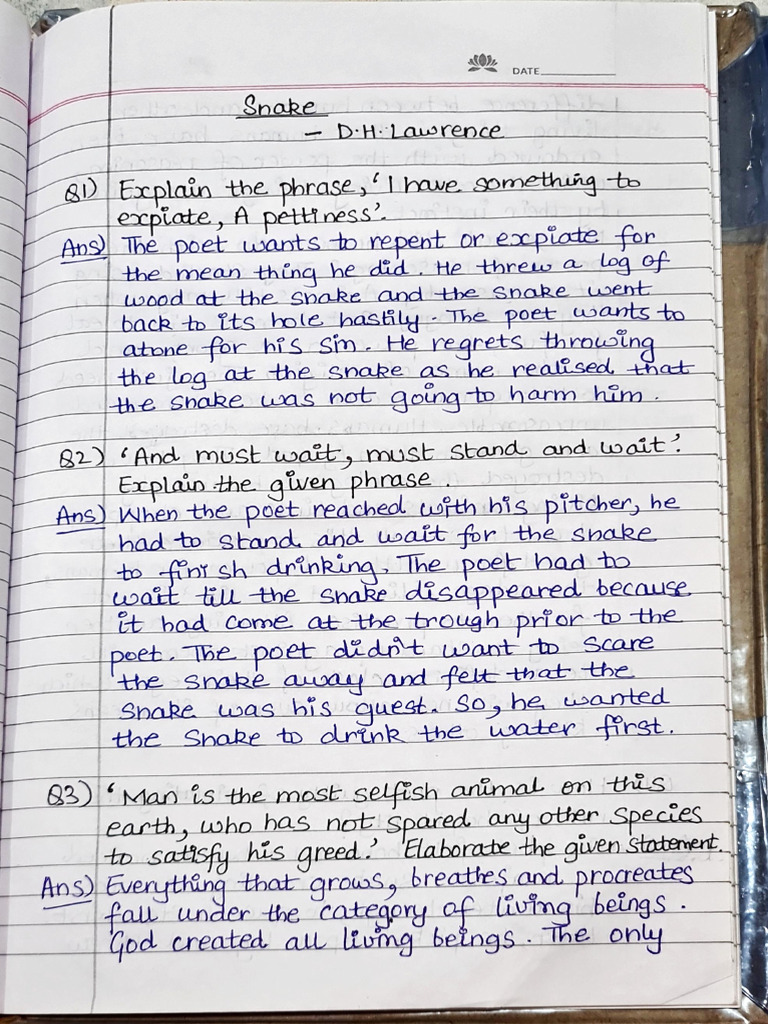 DATE
Snake
- D.H. Lawrence
Q1) Explain the phrase, 'I have something to
expiate, A pettiness'.
Ans) The poet wants to repent or expiate for
the mean thing he did. He threw a log of
wood at the snake and the snake went
back to its hole hastily. The poet wants to
atone for his sin. He regrets throwing
the log at the snake as he realised that
the snake was not going to harm him.
Q2) 'And must wait, must stand and wait'.
Explain the given phrase.
Ans) When the poet reached with his pitcher, he
had to stand and wait for the snake
to finish drinking. The poet had to
wait till the snake disappeared because
it had come at the trough prior to the
poet. The poet didn't want to scare
the snake away and felt that the
snake was his guest. So, he wanted
the snake to drink the water first.
Q3) 'Man is the most selfish animal on this
earth, who has not spared any other species
to satisfy his greed.' Elaborate the given statement.
Ans) Everything that grows, breathes and procreates
fall under the category of living beings.
God created all living beings. The only